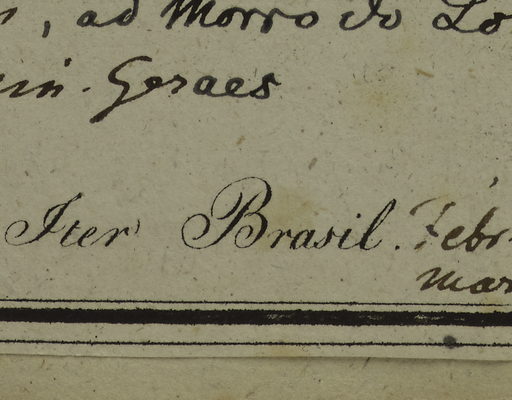 , ad Morro do Lo
in. Geraes
Iter Brasil. Febr
mar